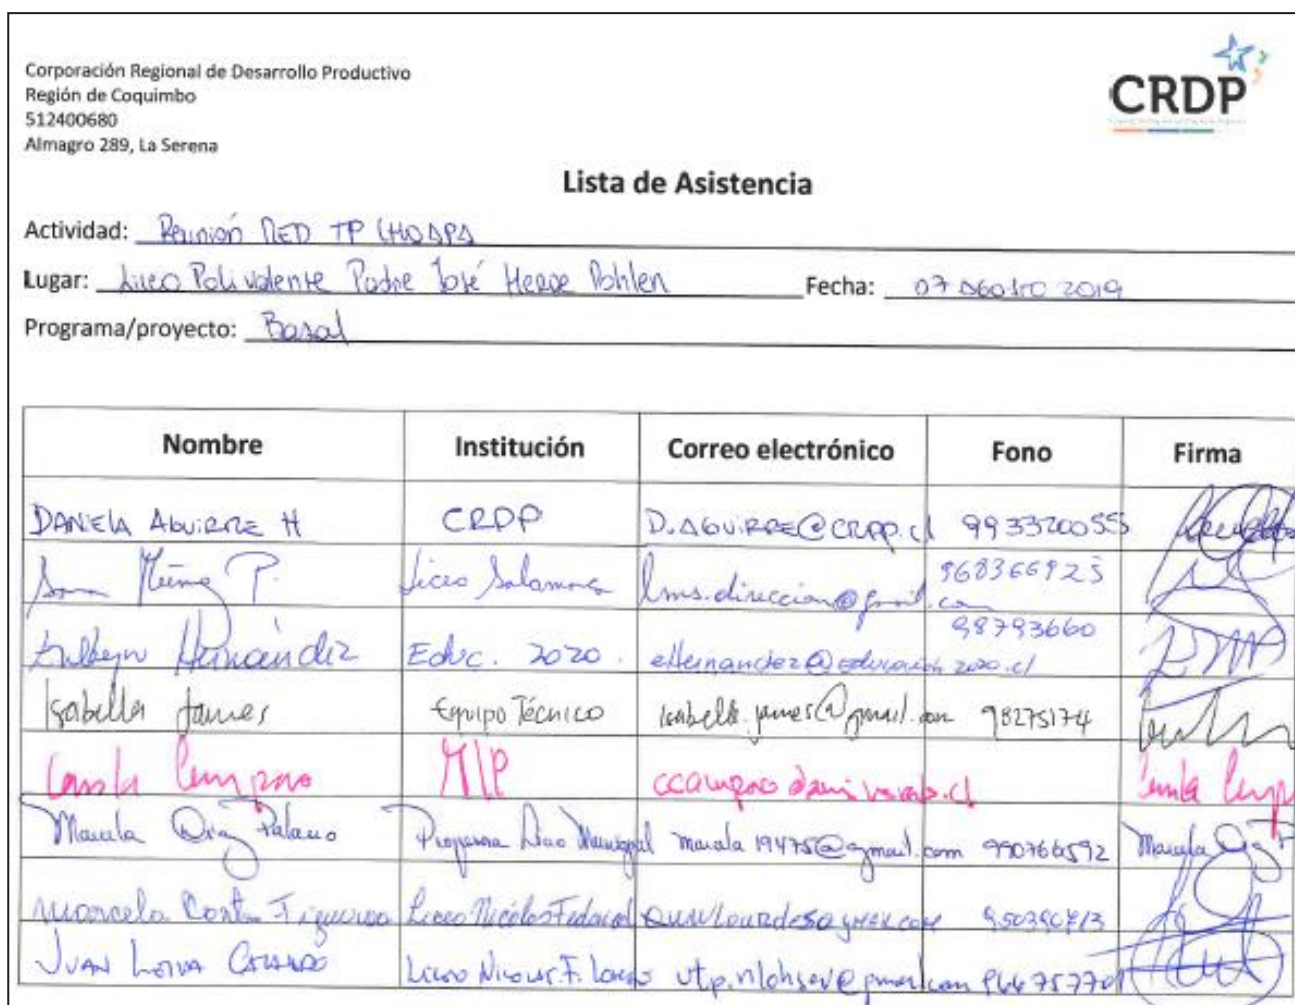 Corporación Regional de Desarrollo Productivo
Región de Coquimbo
512400680
Almagro 289, La Serena
CRDP
Lista de Asistencia
Actividad: Reunión RED TP CHOAPA
Lugar: Liceo Polivalente Padre José Herde Pohlen Fecha: 07 AGOSTO 2019
Programa/proyecto: Basal
Nombre Institución Correo electrónico Fono Firma
DANIELA AGUIRRE H CRDP D.AGUIRRE@CRDP.cl 993320055
Muñoz P. Liceo Salamanca lms.direccion@gmail.com 968366925
Hernández Educ. 2020. eHernandez@educacion2020.cl 98793660
Isabella James Equipo Técnico isabella.james@gmail.com 98275174
Camila Campano MLP
Marcela Díaz Palacio Liceo Municipal marcela19475@gmail.com 990766592 Marcela Díaz P
Marcela Cortes Figueroa Liceo Nicolás Federico
JUAN LEIVA Liceo Nicolas F. Lohse